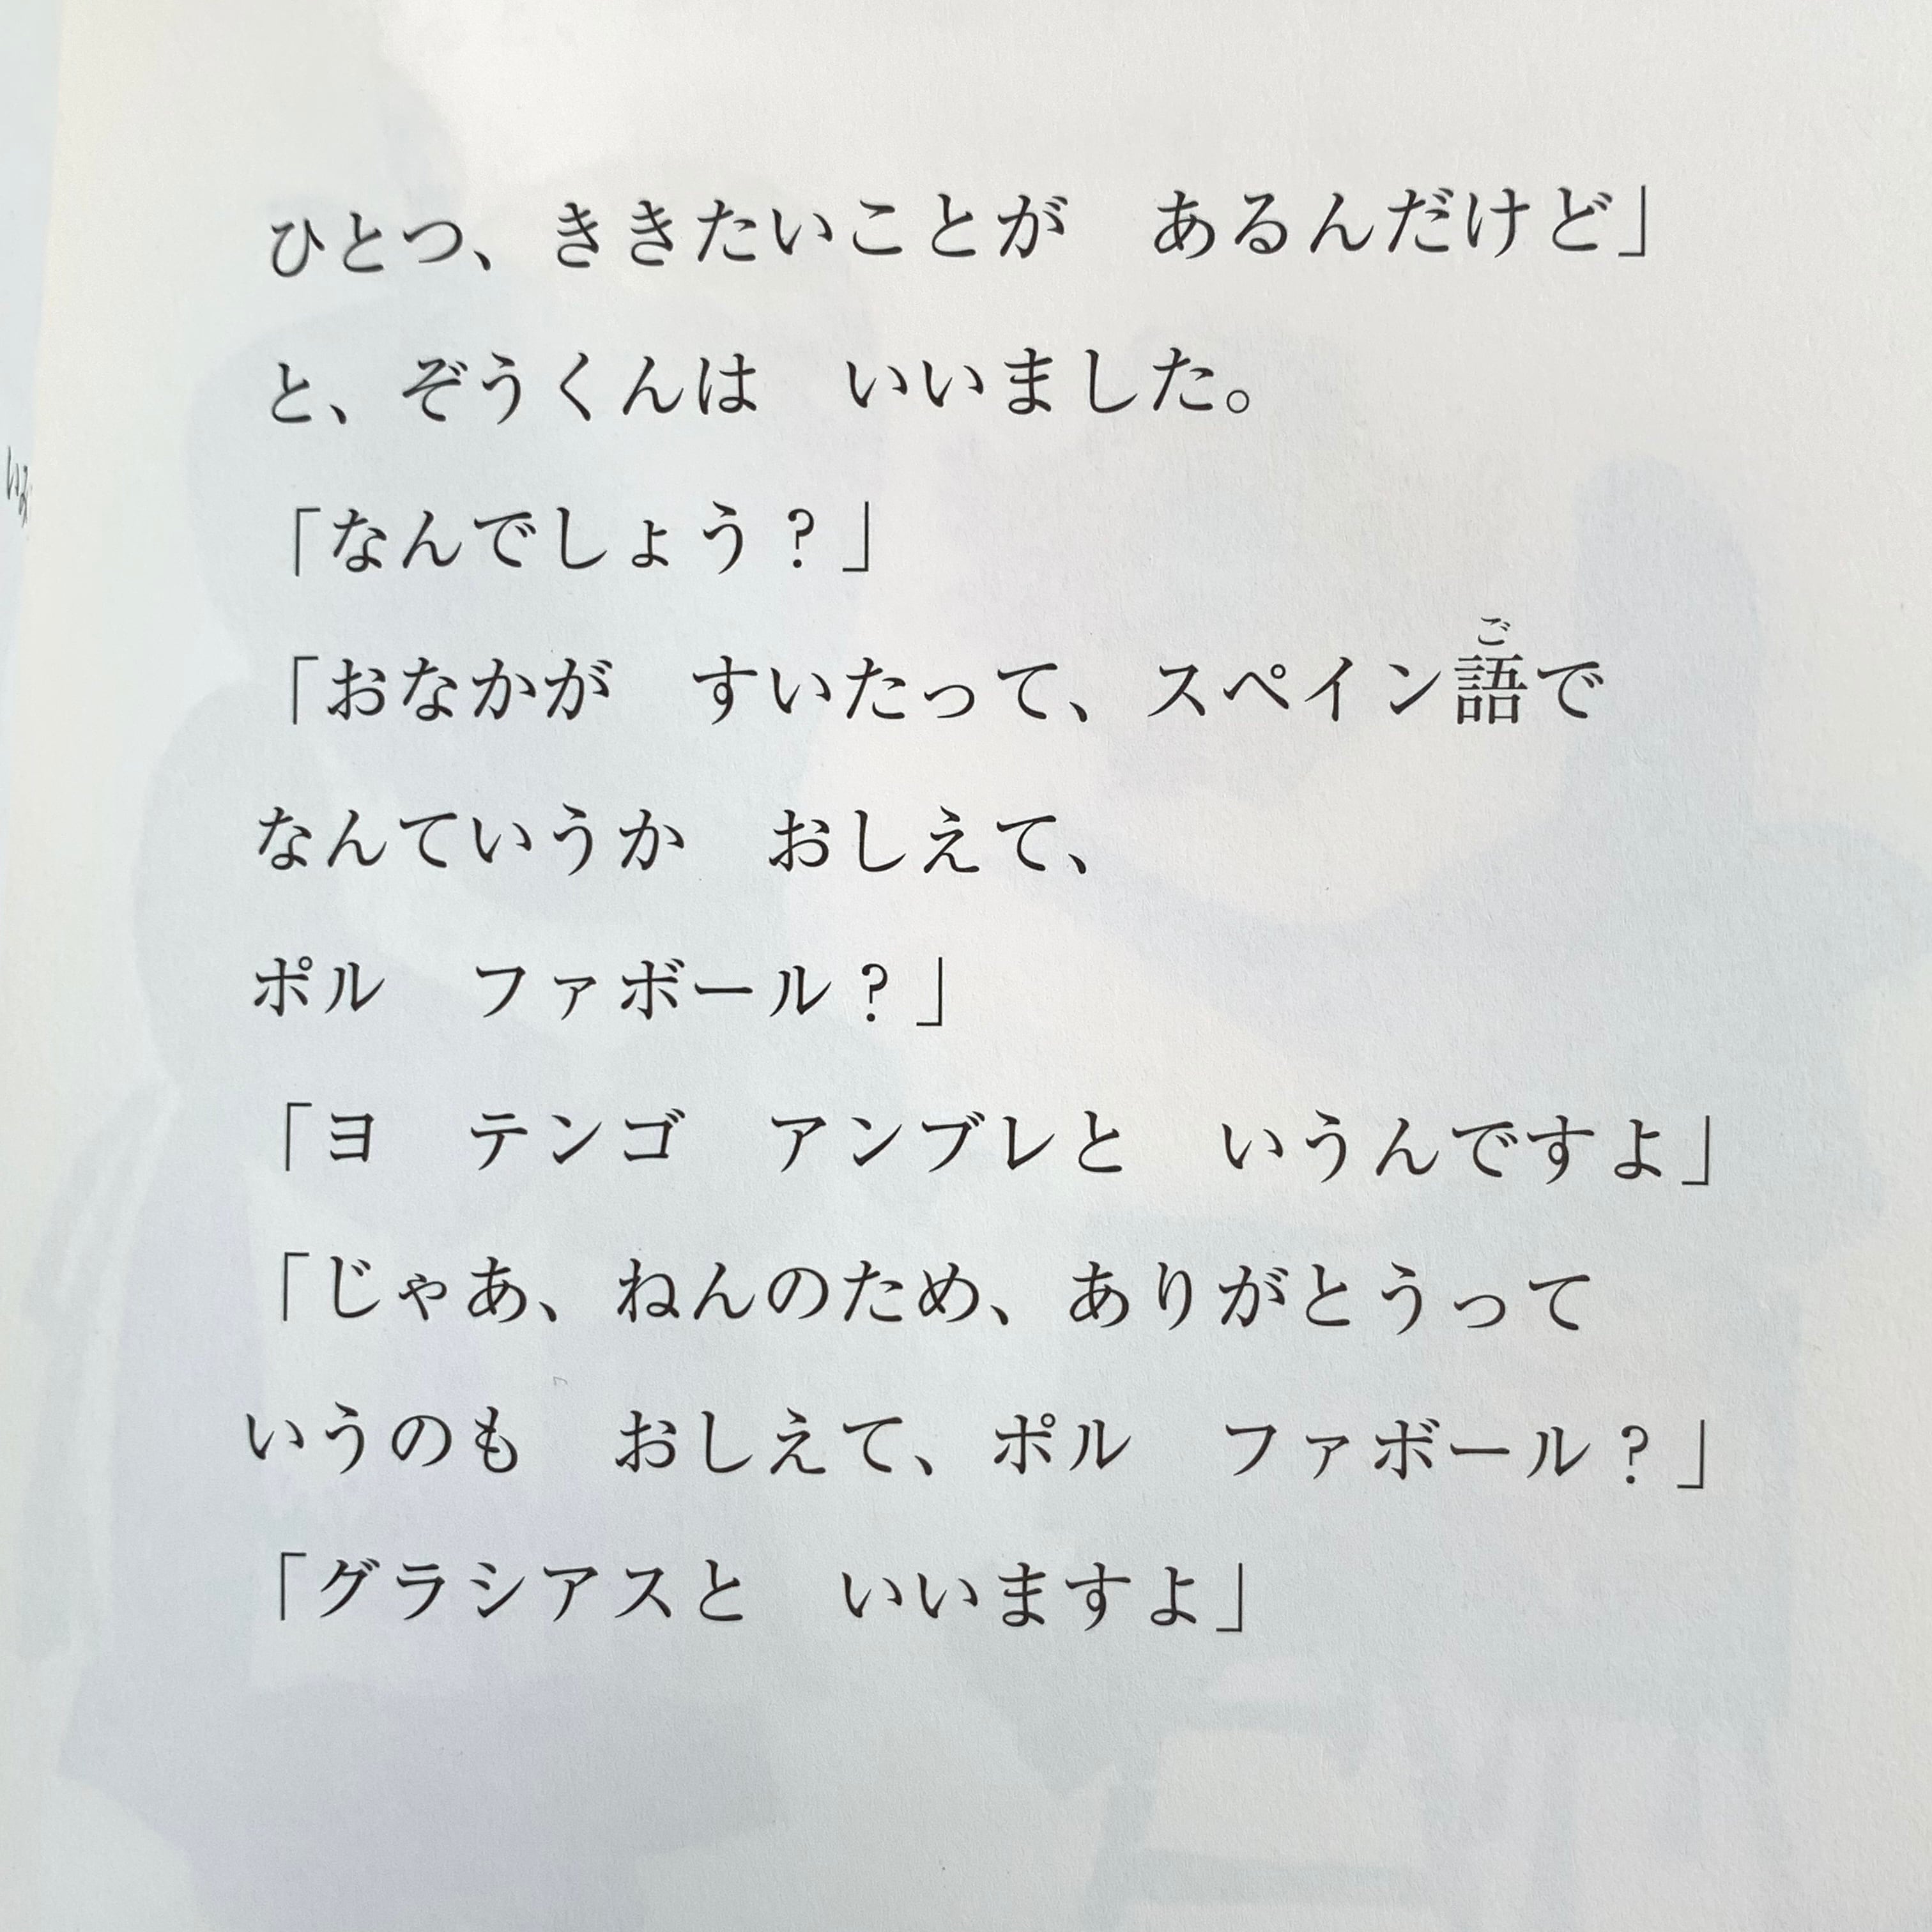 ひとつ、ききたいことが　あるんだけど」
と、ぞうくんは　いいました。
「なんでしょう？」
「おなかが　すいたって、スペイン語で
なんていうか　おしえて、
ポル　ファボール？」
「ヨ　テンゴ　アンブレと　いうんですよ」
「じゃあ、ねんのため、ありがとうって
いうのも　おしえて、ポル　ファボール？」
「グラシアスと　いいますよ」